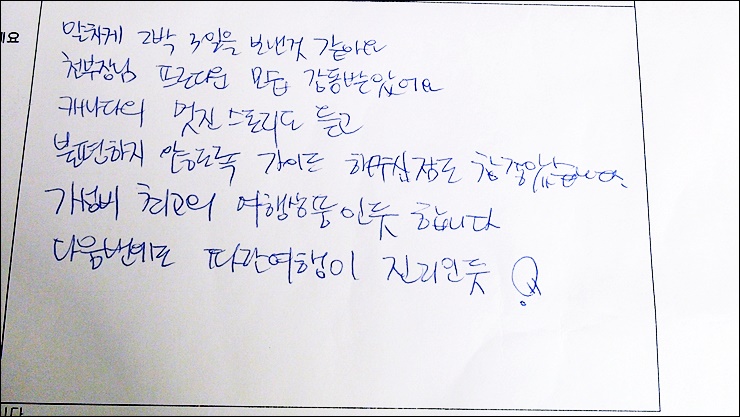 알차게 2박 3일을 보낸것 같아요
천부장님 프로다운 모습 감동받았어요
캐나다의 멋진 스토리도 듣고
불편하지 않도록 가이드 해주신점도 참 좋았습니다.
가성비 최고의 여행상품인듯 합니다
다음번에도 따란여행이 진리인듯